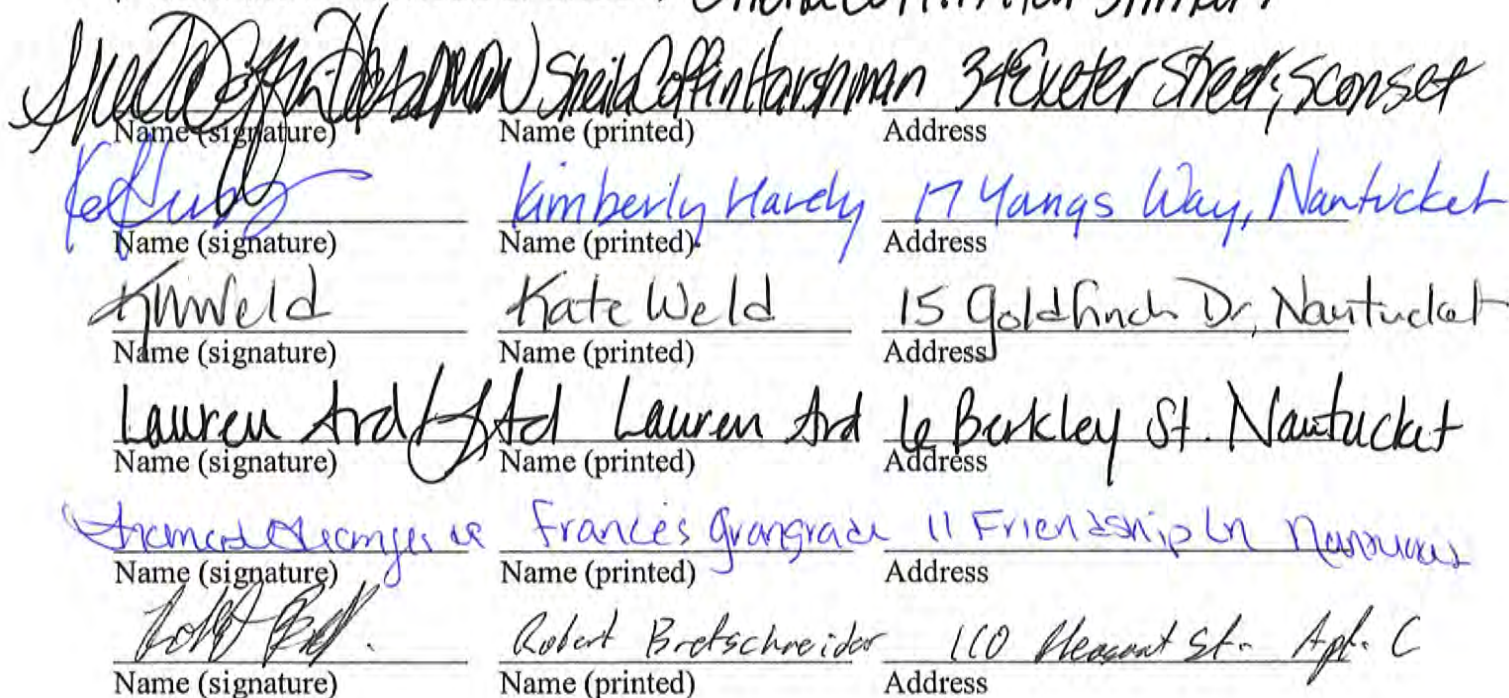 Sheila Coffin Harshman
Sheila Coffin Harshman 34 Exeter Street, Sconset
Name (signature) Name (printed) Address
Kimberly Hardy 17 Yangs Way, Nantucket
Name (signature) Name (printed) Address
KWWeld Kate Weld 15 Goldfinch Dr, Nantucket
Name (signature) Name (printed) Address
Lauren Ard Lauren Ard 6 Berkley St. Nantucket
Name (signature) Name (printed) Address
Frances 11 Friendship Ln
Name (signature) Name (printed) Address
Robert Bretschneider 110 Pleasant St. Apt. C
Name (signature) Name (printed) Address